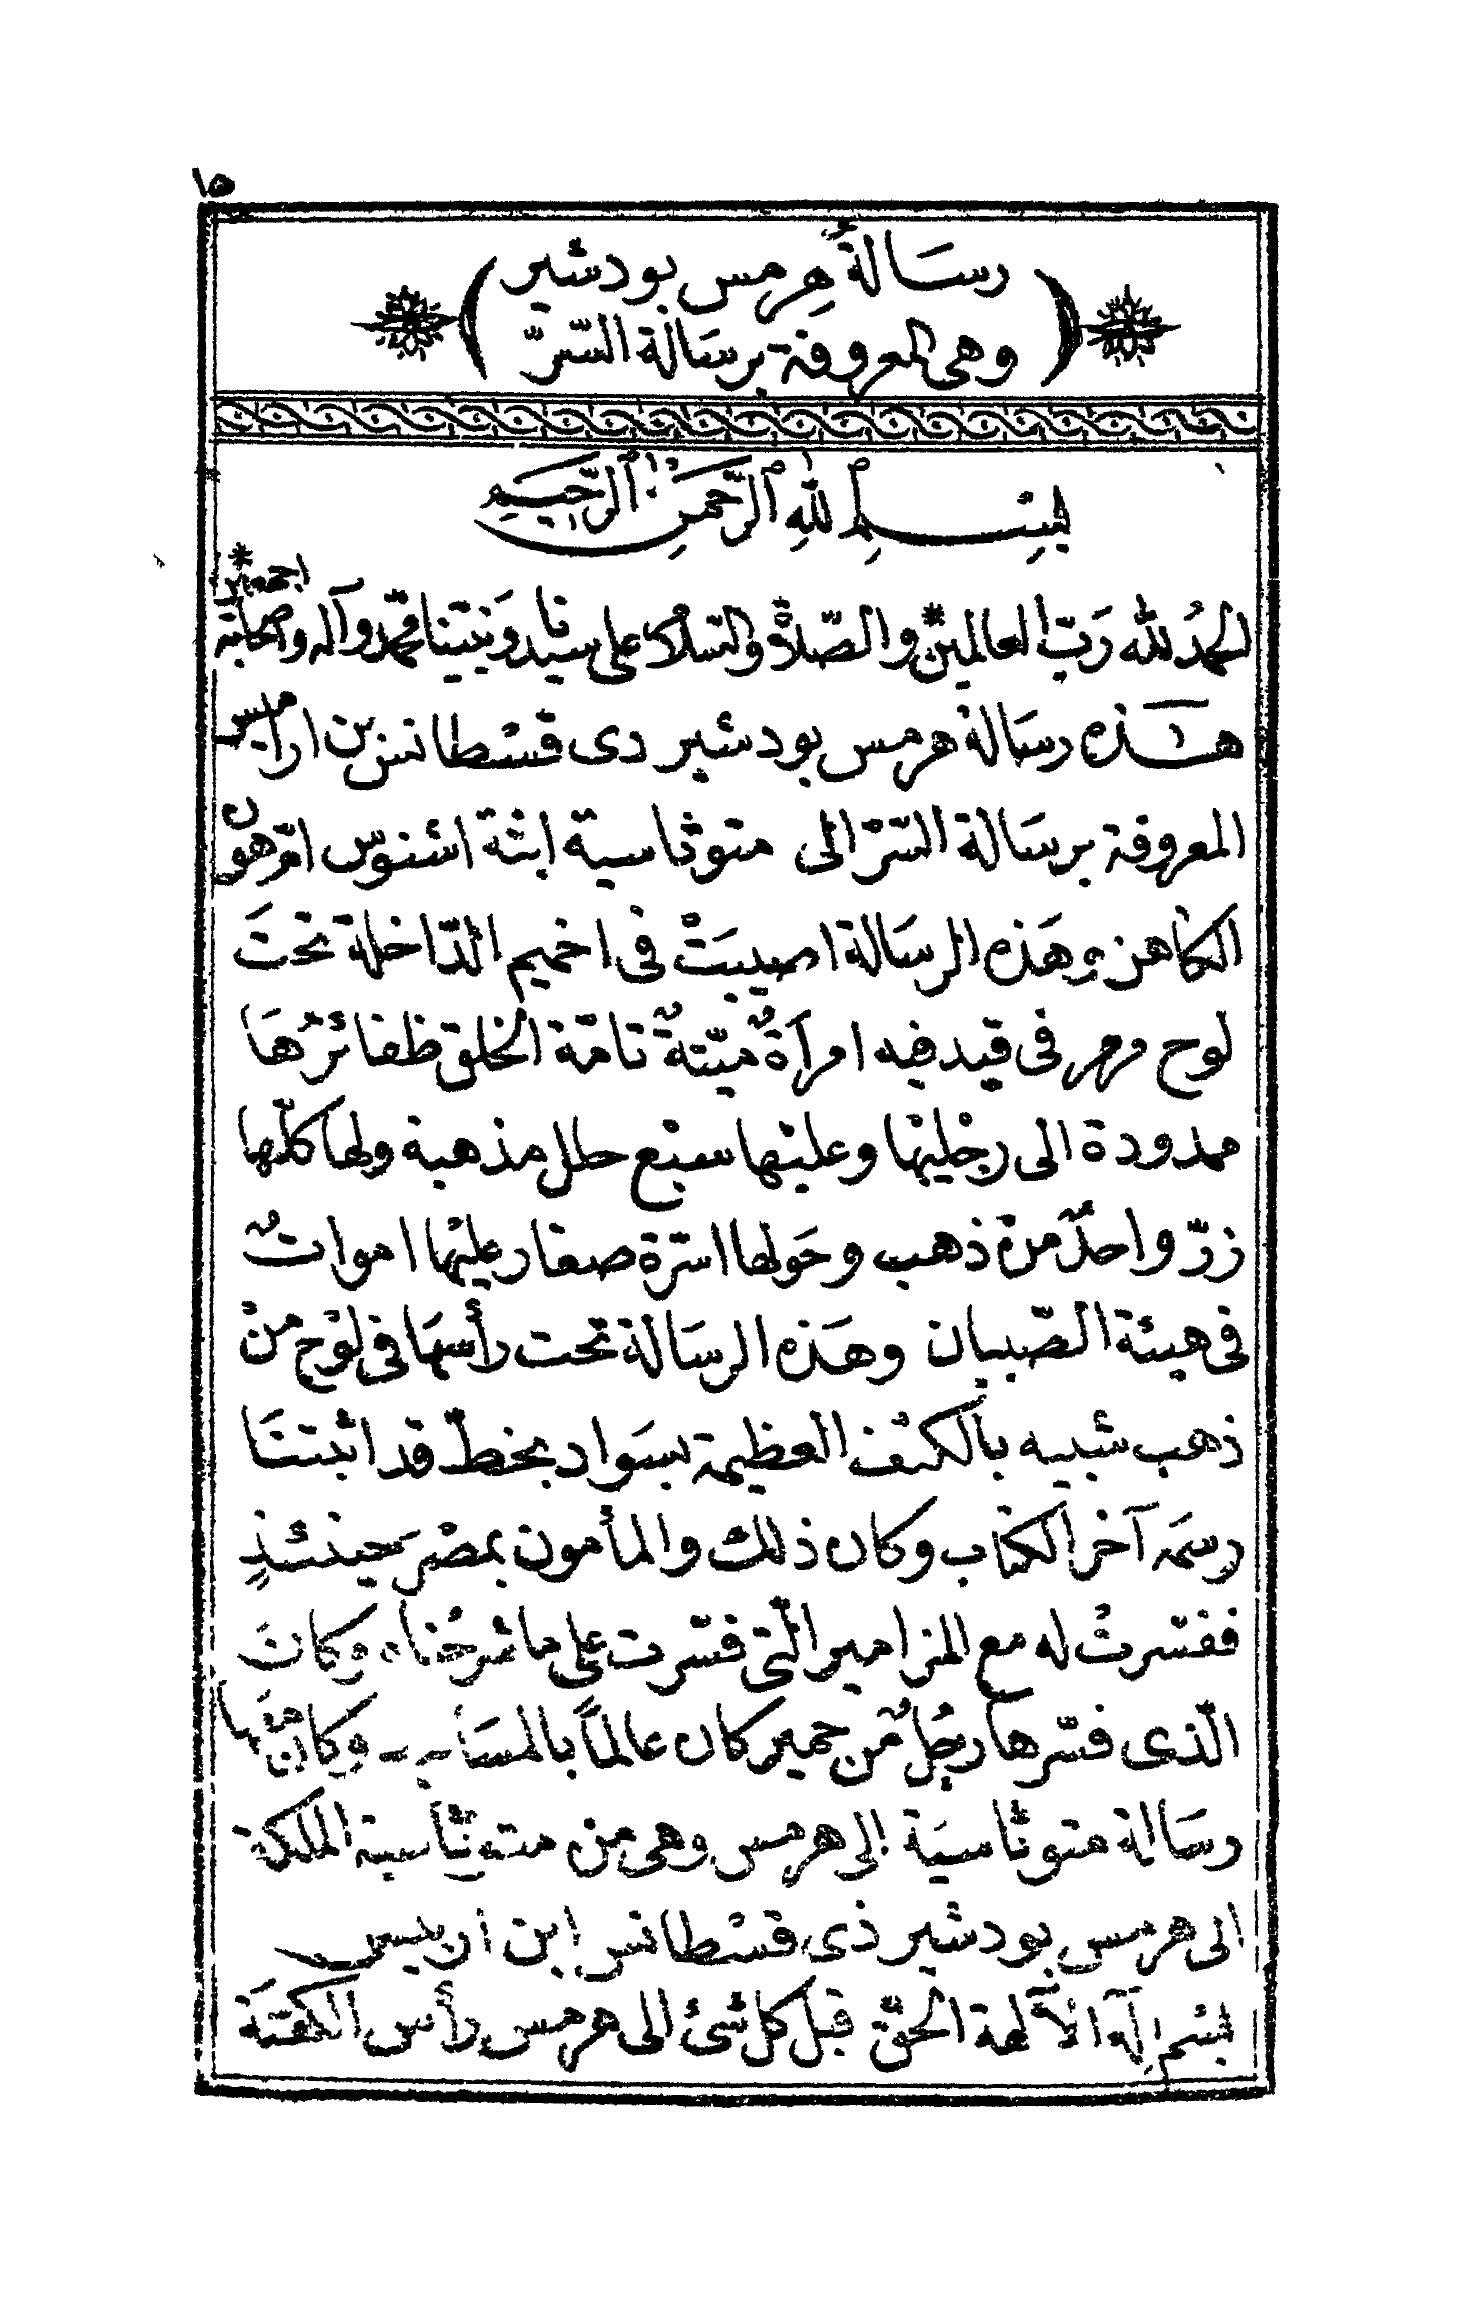 ١٥
رسَالةُ هِرمِس بودشير
وهى المعروفة برسَالة السّرّ
بِسْمِ اللّٰهِ الرَّحْمٰنِ الرَّحِيمِ
الحمدُ للّٰه رَبّ العالمين * والصّلاة والسّلام على سيّدنا ونبيّنا محمّد وآله وصحابته اجمعين *
هٰذه رسَالة هرمس بودشير دى قسْطانس بن اراميس
المعروفة برسَالة السّرّ الى متوثاسية ابنة اشنوس امّرهون
الكاهن وهَذه الرسَالة اصيبَتْ فى اخميم الدّاخلة تحتَ
لوح مرمر فى قيد فيه امرأةٌ ميّتةٌ تامّة الخلق ظفائرُهَا
ممدودة الى رجْليْها وعليْها سبْع حلل مذهبة ولها كلّها
زرّ واحدٌ منْ ذهب وحَولها اسّرة صغار عليْها امواتٌ
فى هيئة الصّبيان وهَذه الرسَالة تحت رأسهَا فى لوْح منْ
ذهب شبيه بالكتف العظيمة بسَواد بخطّ قد اثبتنَا
رسمَه آخر الكتاب وكان ذلك والمأمون بمصْرَ حينئذٍ
ففسّرتُ له مع المزامير الّتى فسّرت على ماشرحْناه وكانَ
الّذى فسّرها رجُلٌ من حمير كان عالمًا بالمسَا وكان معَها
رسَالة متوثاسيَة إلى هرمس وهى من متوثاسية الملكة
الى هرمس بودشير ذى قسْطانس ابن اريس
بسْم إلٰه الآلهة الحقّ قبل كل شئ الى هرمس رأس الكهنَة